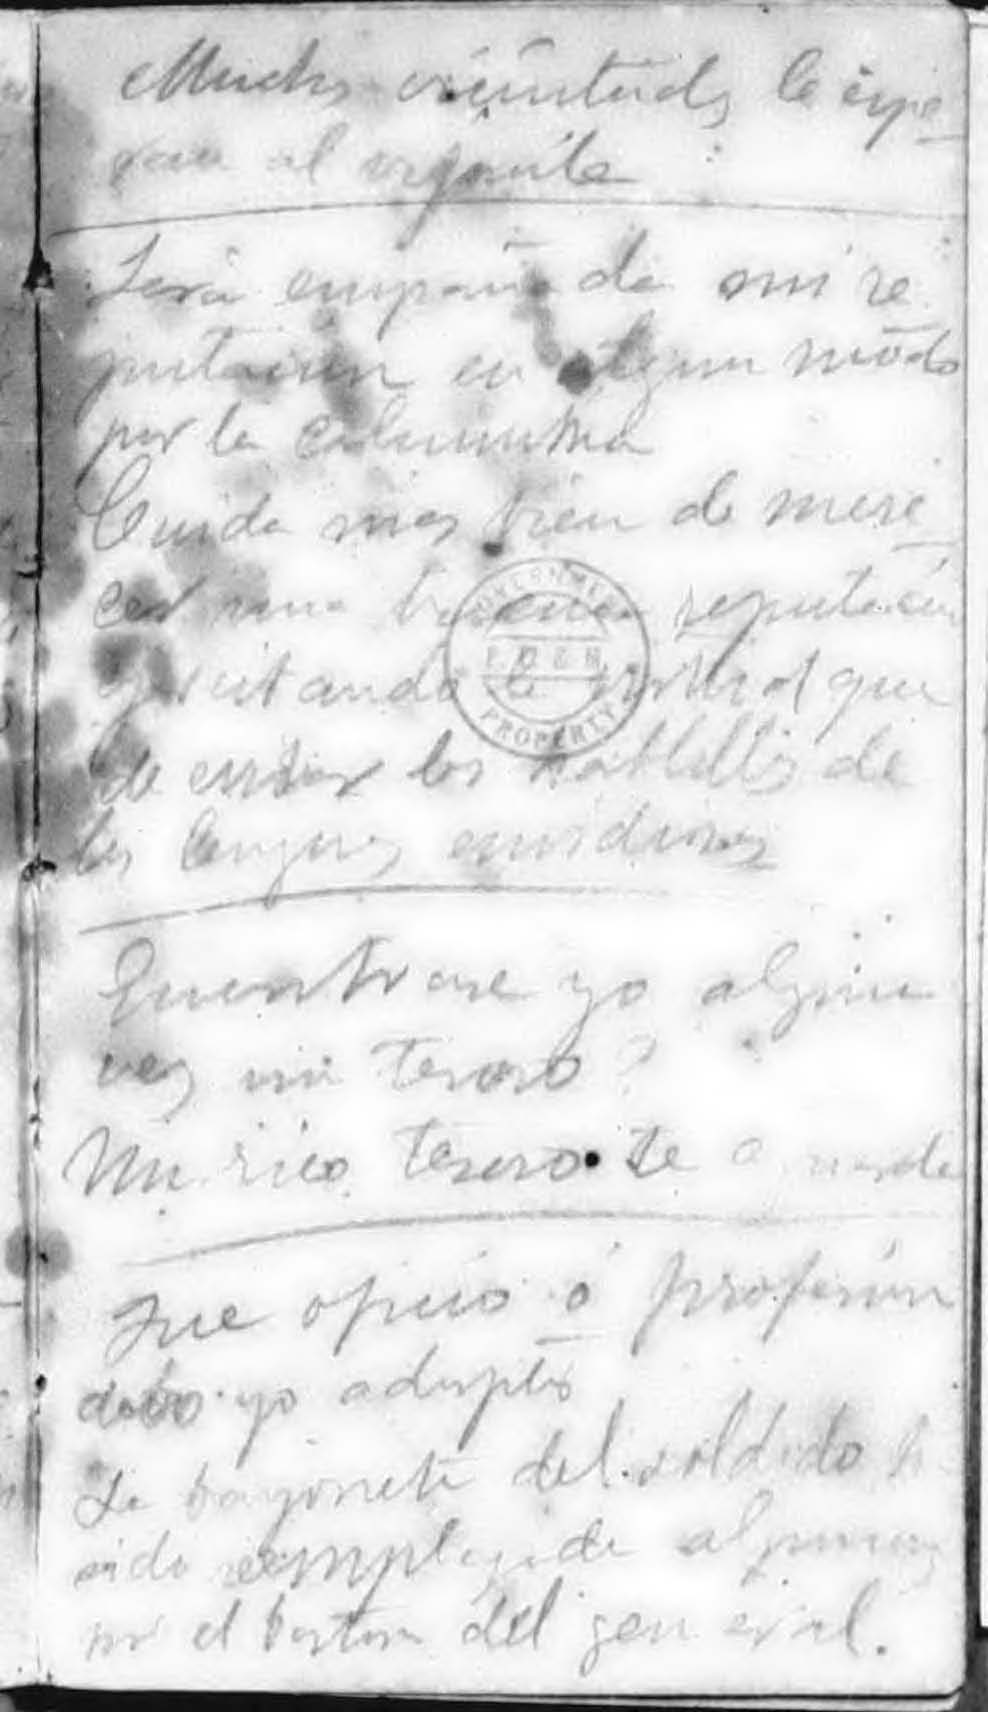 Muchas vicisitudes le espe-
ran al viajante
Será empañada mi re-
putacion en algun modo
por la calumnia
Cuida mas bien de mere-
cer una buena reputación
que
los
de
las lenguas envidiosas
Encontrare yo alguna
vez un tesoro?
Un rico tesoro te aguarda
Que oficio ó profesión
debo yo adoptar
La bayoneta del soldado h
sido remplazada algunas
por el baston del general.
GOVERNMENT
PROPERTY